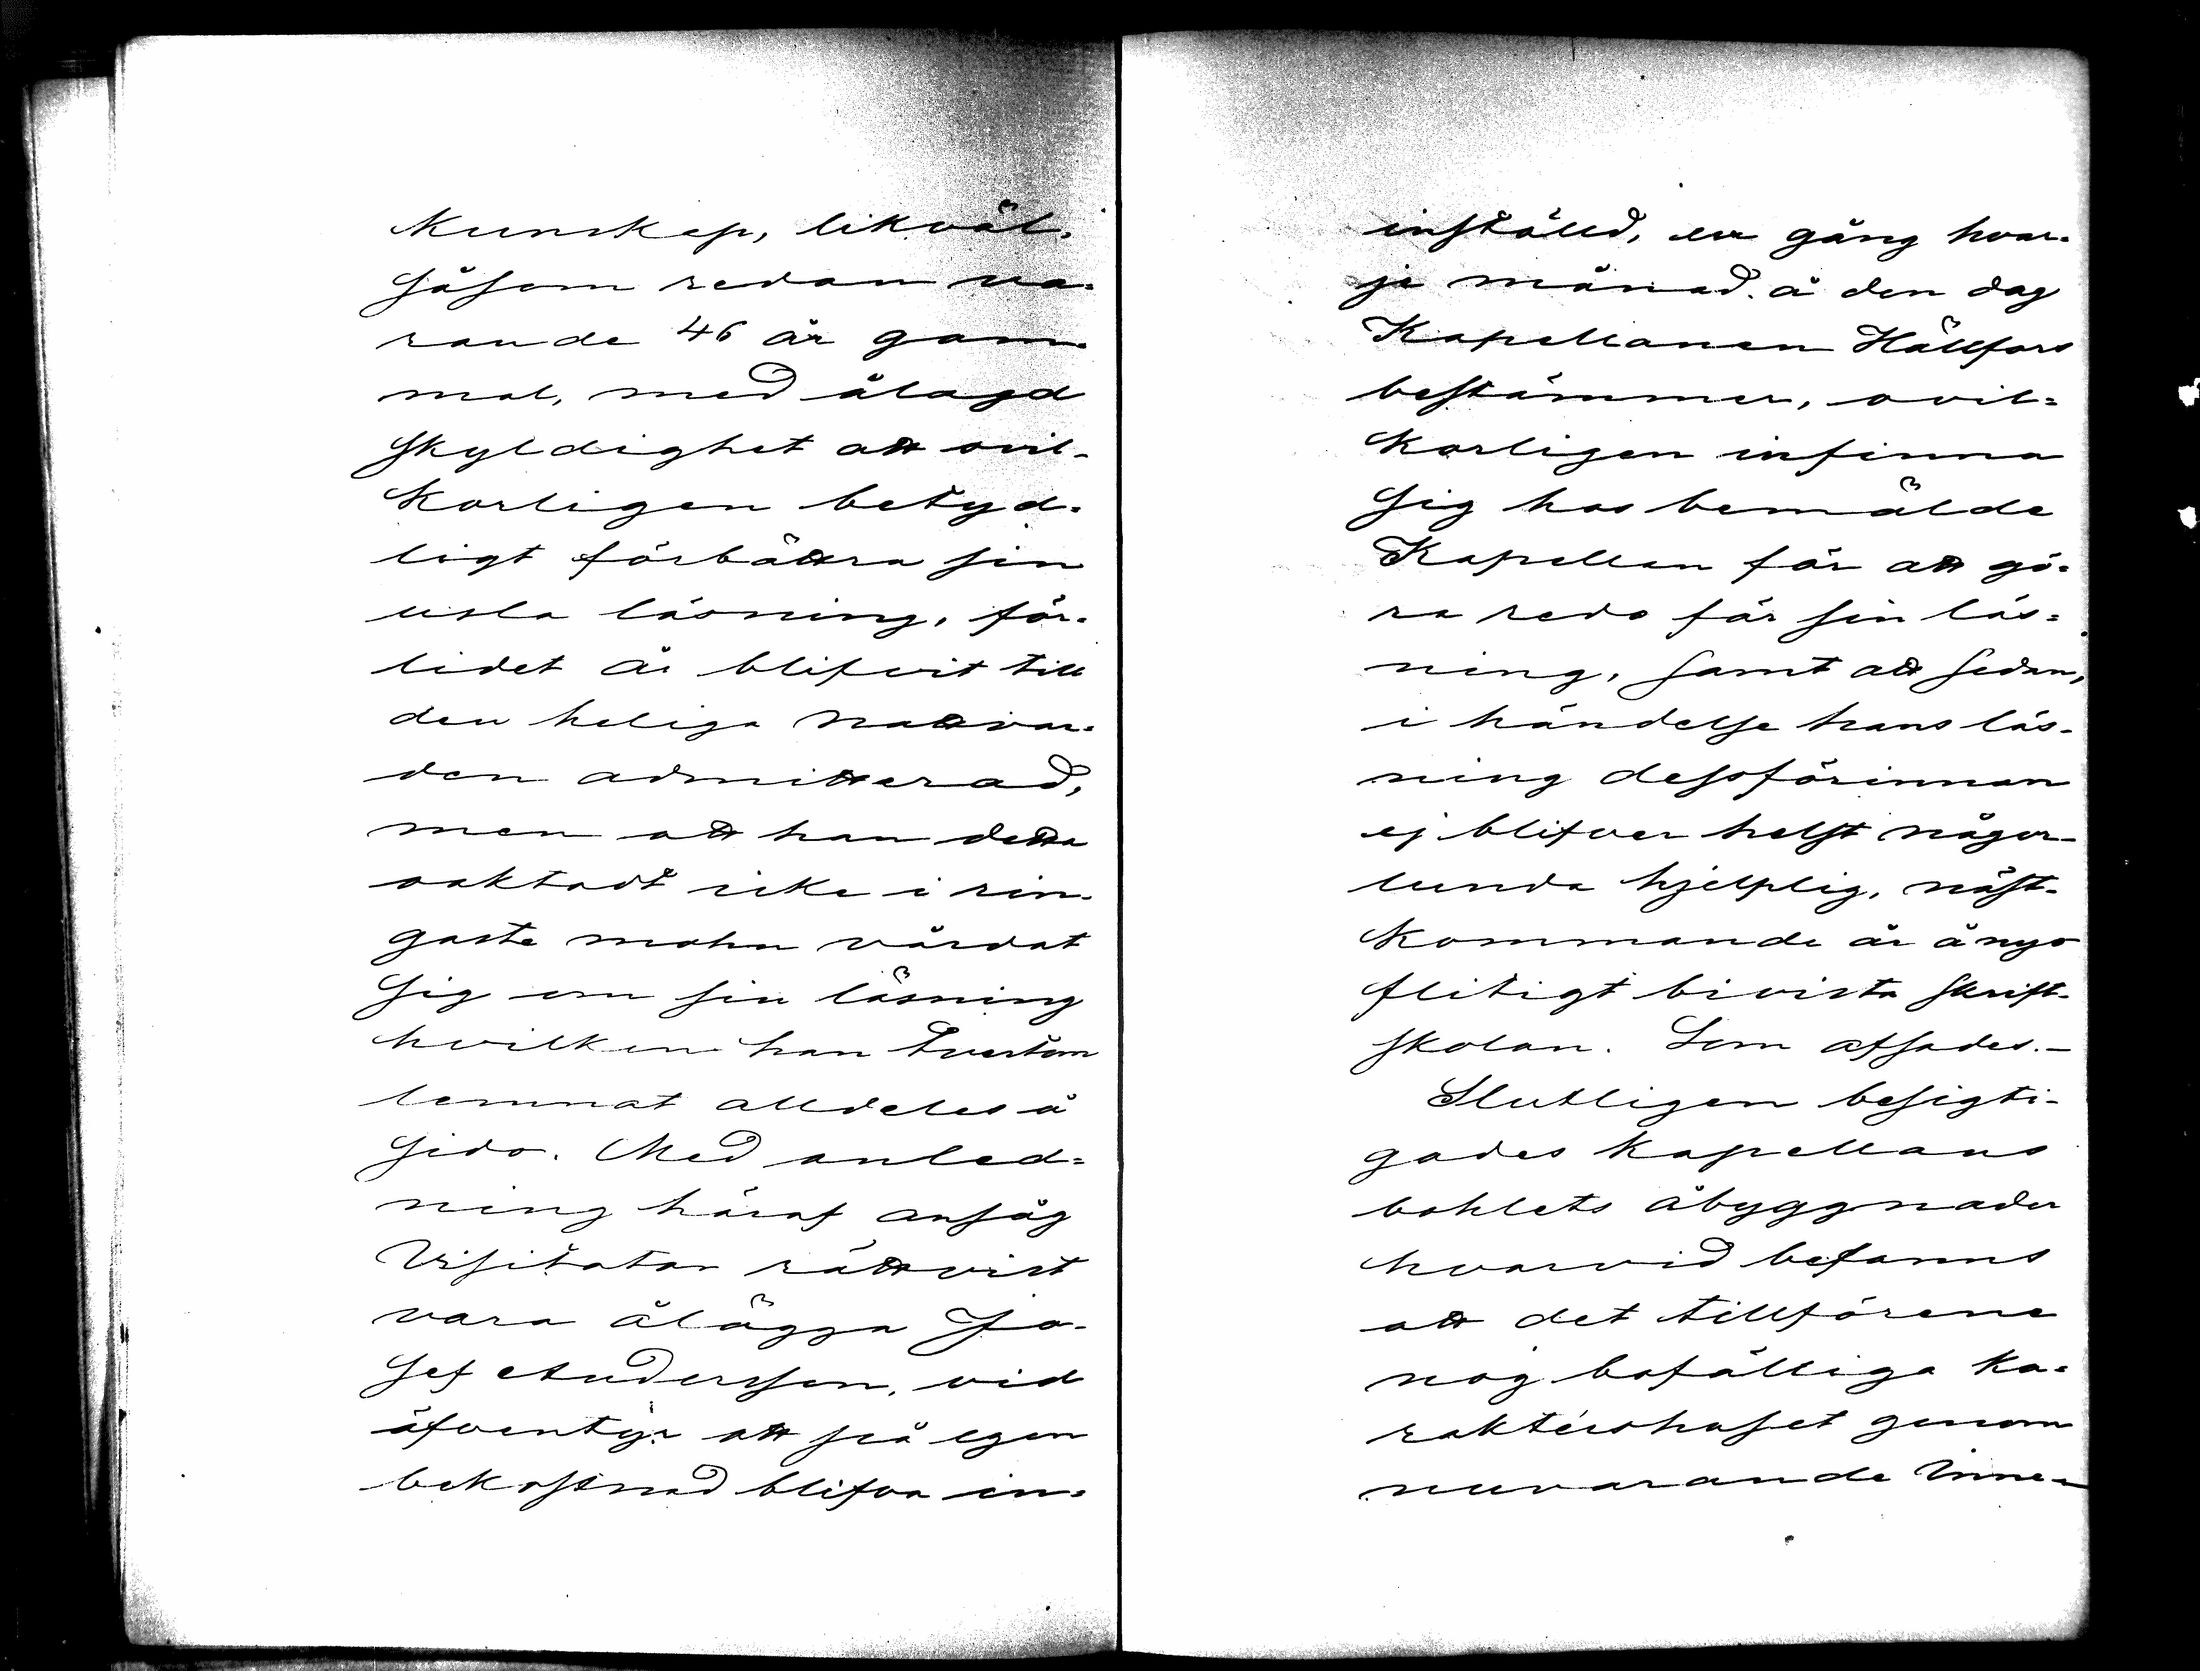 Kunskap, likväl,
såsom redan va-
rande 46 år gam-
mal, med ålagd
skyldighet att ovil-
korligen betyd-
ligt förbättra sin
usla läsning, för-
lidet år blifvit till
den heliga nattvar-
den admitterad,
men att han detta
oaktadt icke i rin-
gaste mohn vårdat
sig om sin läsning
hvilken han tvertom
lemnat alldeles å
sido. Med anled-
ning häraf ansåg
Visitator rättvist
vara ålägga Jo-
sef Andersson, vid
äfventyr att på egen
bekostnad blifva in-
inställd, en gång hvar-
je månad å den dag
Kapellanen Hällfors
bestämmer, ovil-
korligen infinna
sig hos bemälde
Kapellan för att gö-
ra redo för sin läs-
ning, samt att sedan,
i händelse hans läs-
ning dessförinnan
ej blifver helst någor-
lunda hjelplig, näst-
kommande år ånyo
flitigt bivista skrift-
skolan. Som afsades.-
Slutligen besigti-
gades Kapellans
bohlets åbyggnader
hvarvid befanns
att det tillförene
nog bofälliga Ka-
raktershuset genom
nuvarande Inne-